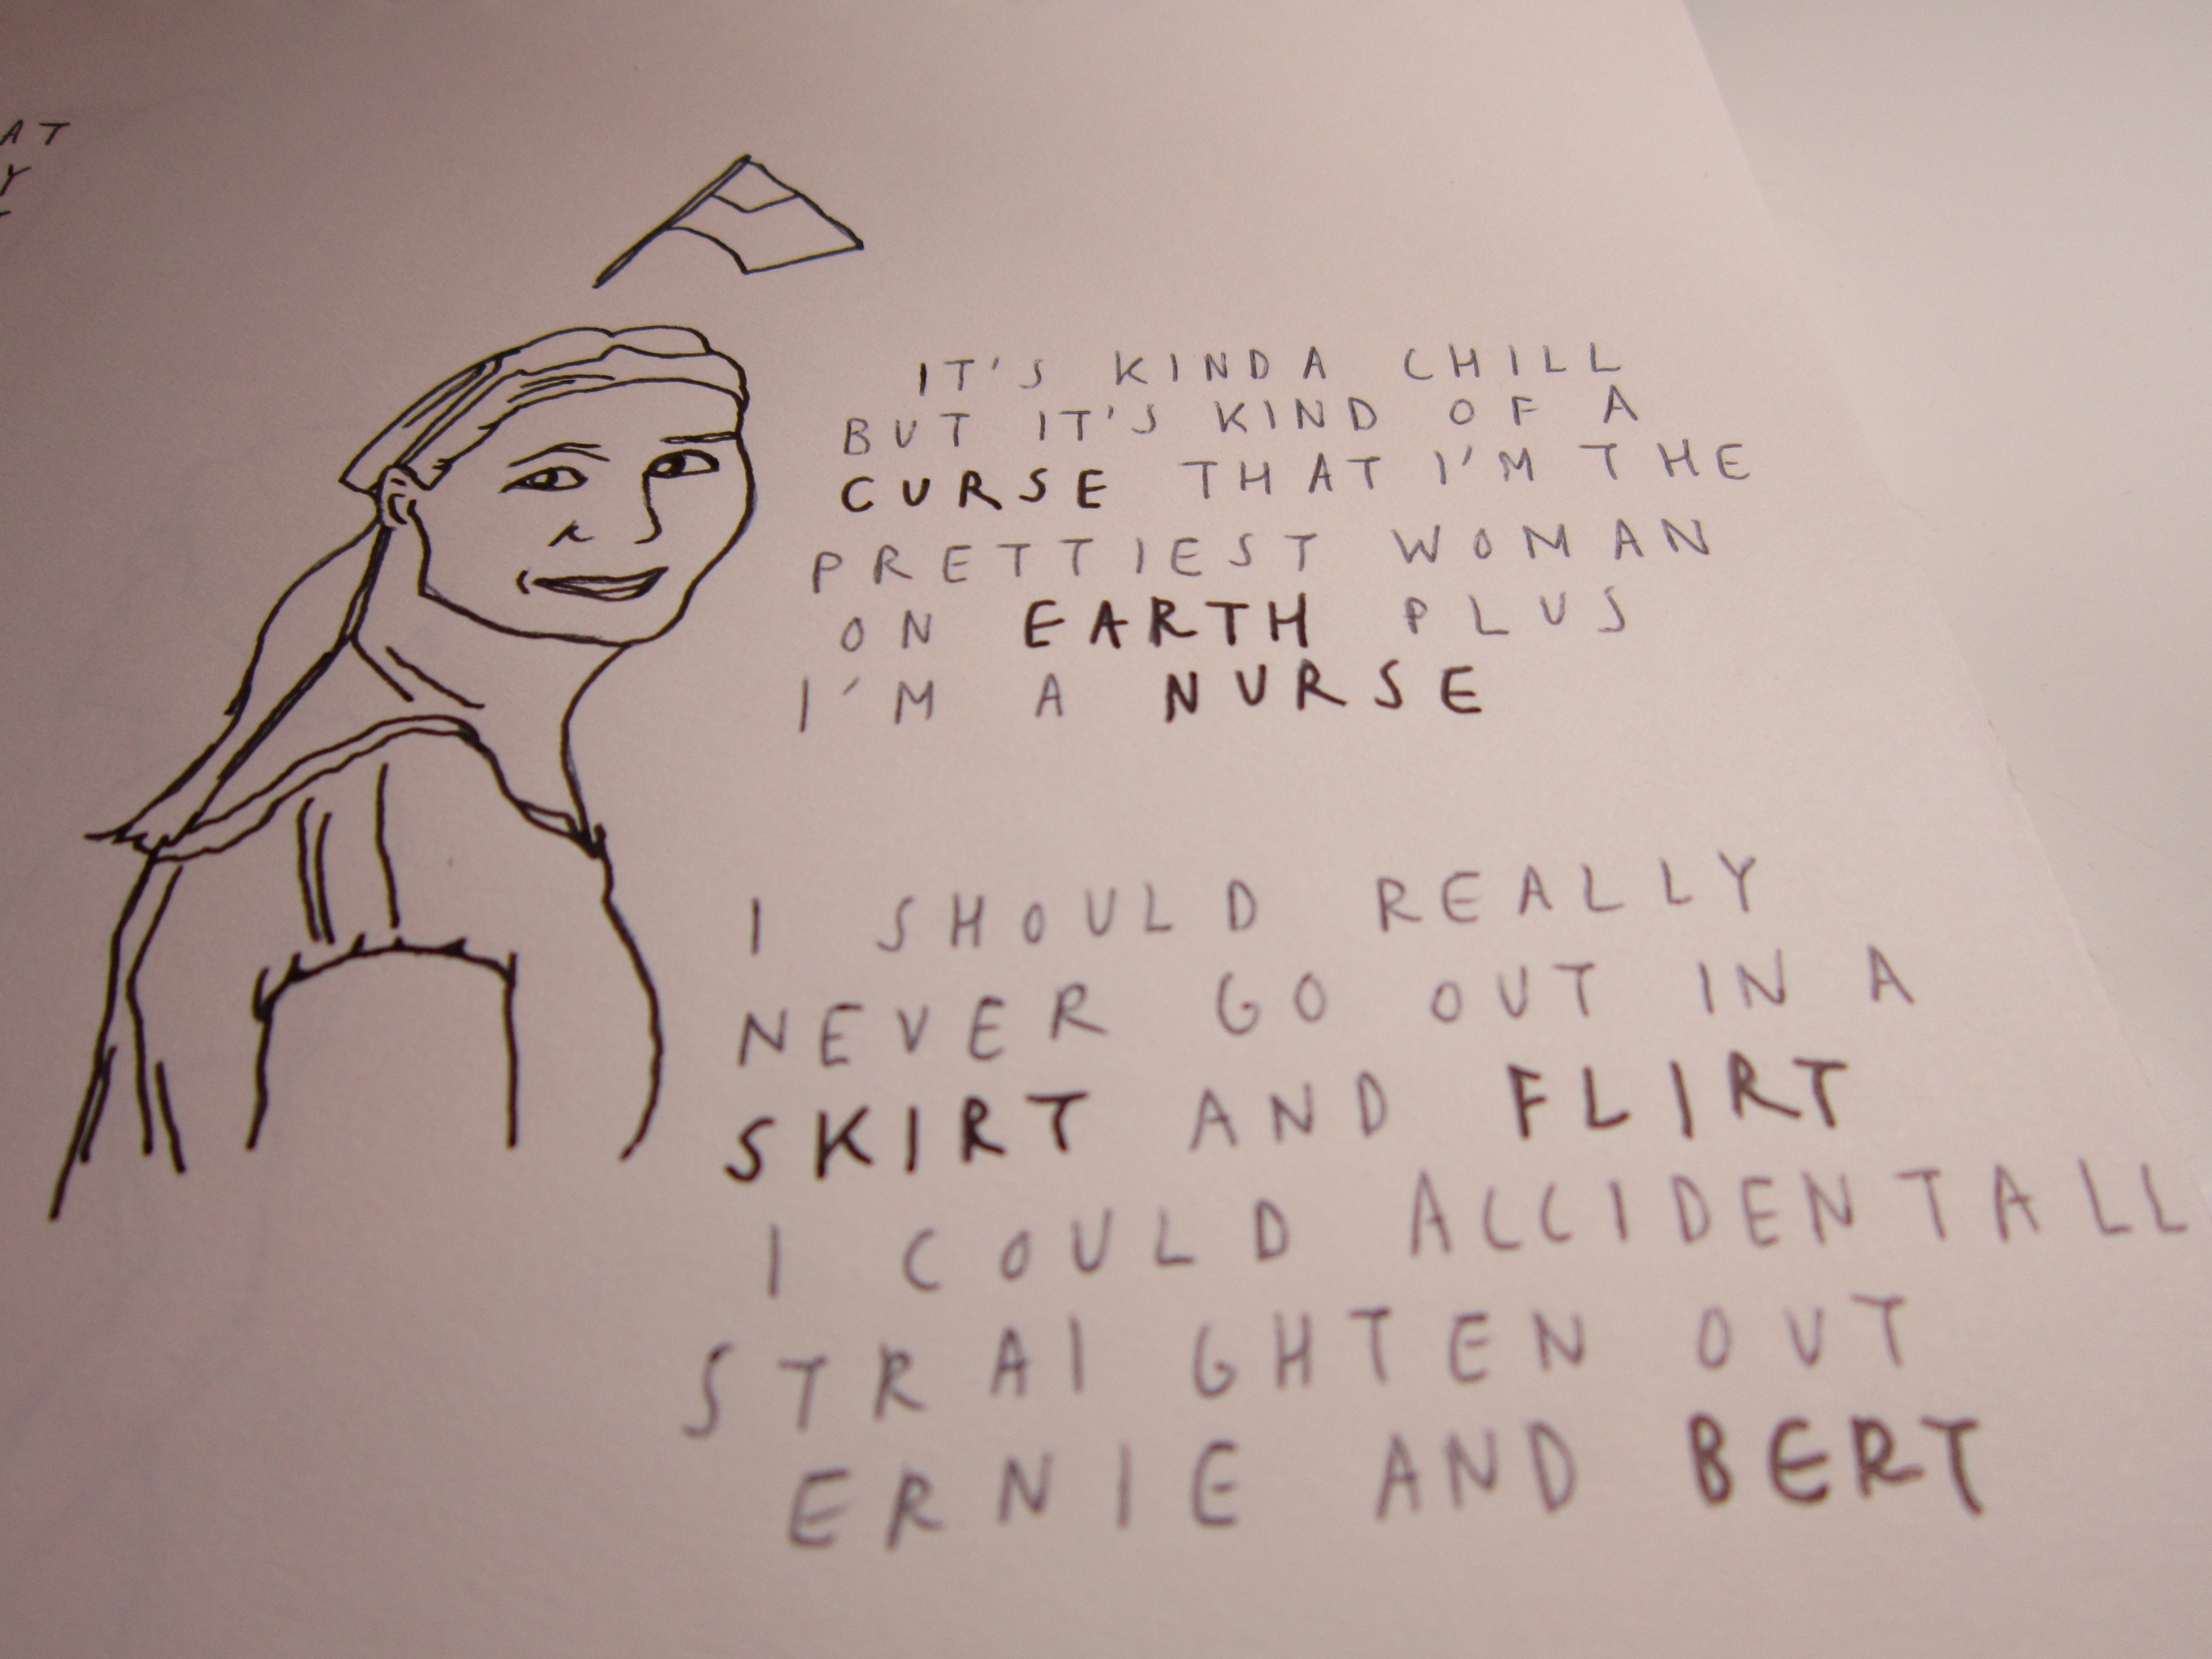 AT
Y
IT'S KINDA CHILL
BUT IT'S KIND OF A
CURSE THAT I'M THE
PRETTIEST WOMAN
ON EARTH PLUS
I'M A NURSE
I SHOULD REALLY
NEVER GO OUT IN A
SKIRT AND FLIRT
I COULD ACCIDENTALL
STRAIGHTEN OUT
ERNIE AND BERT